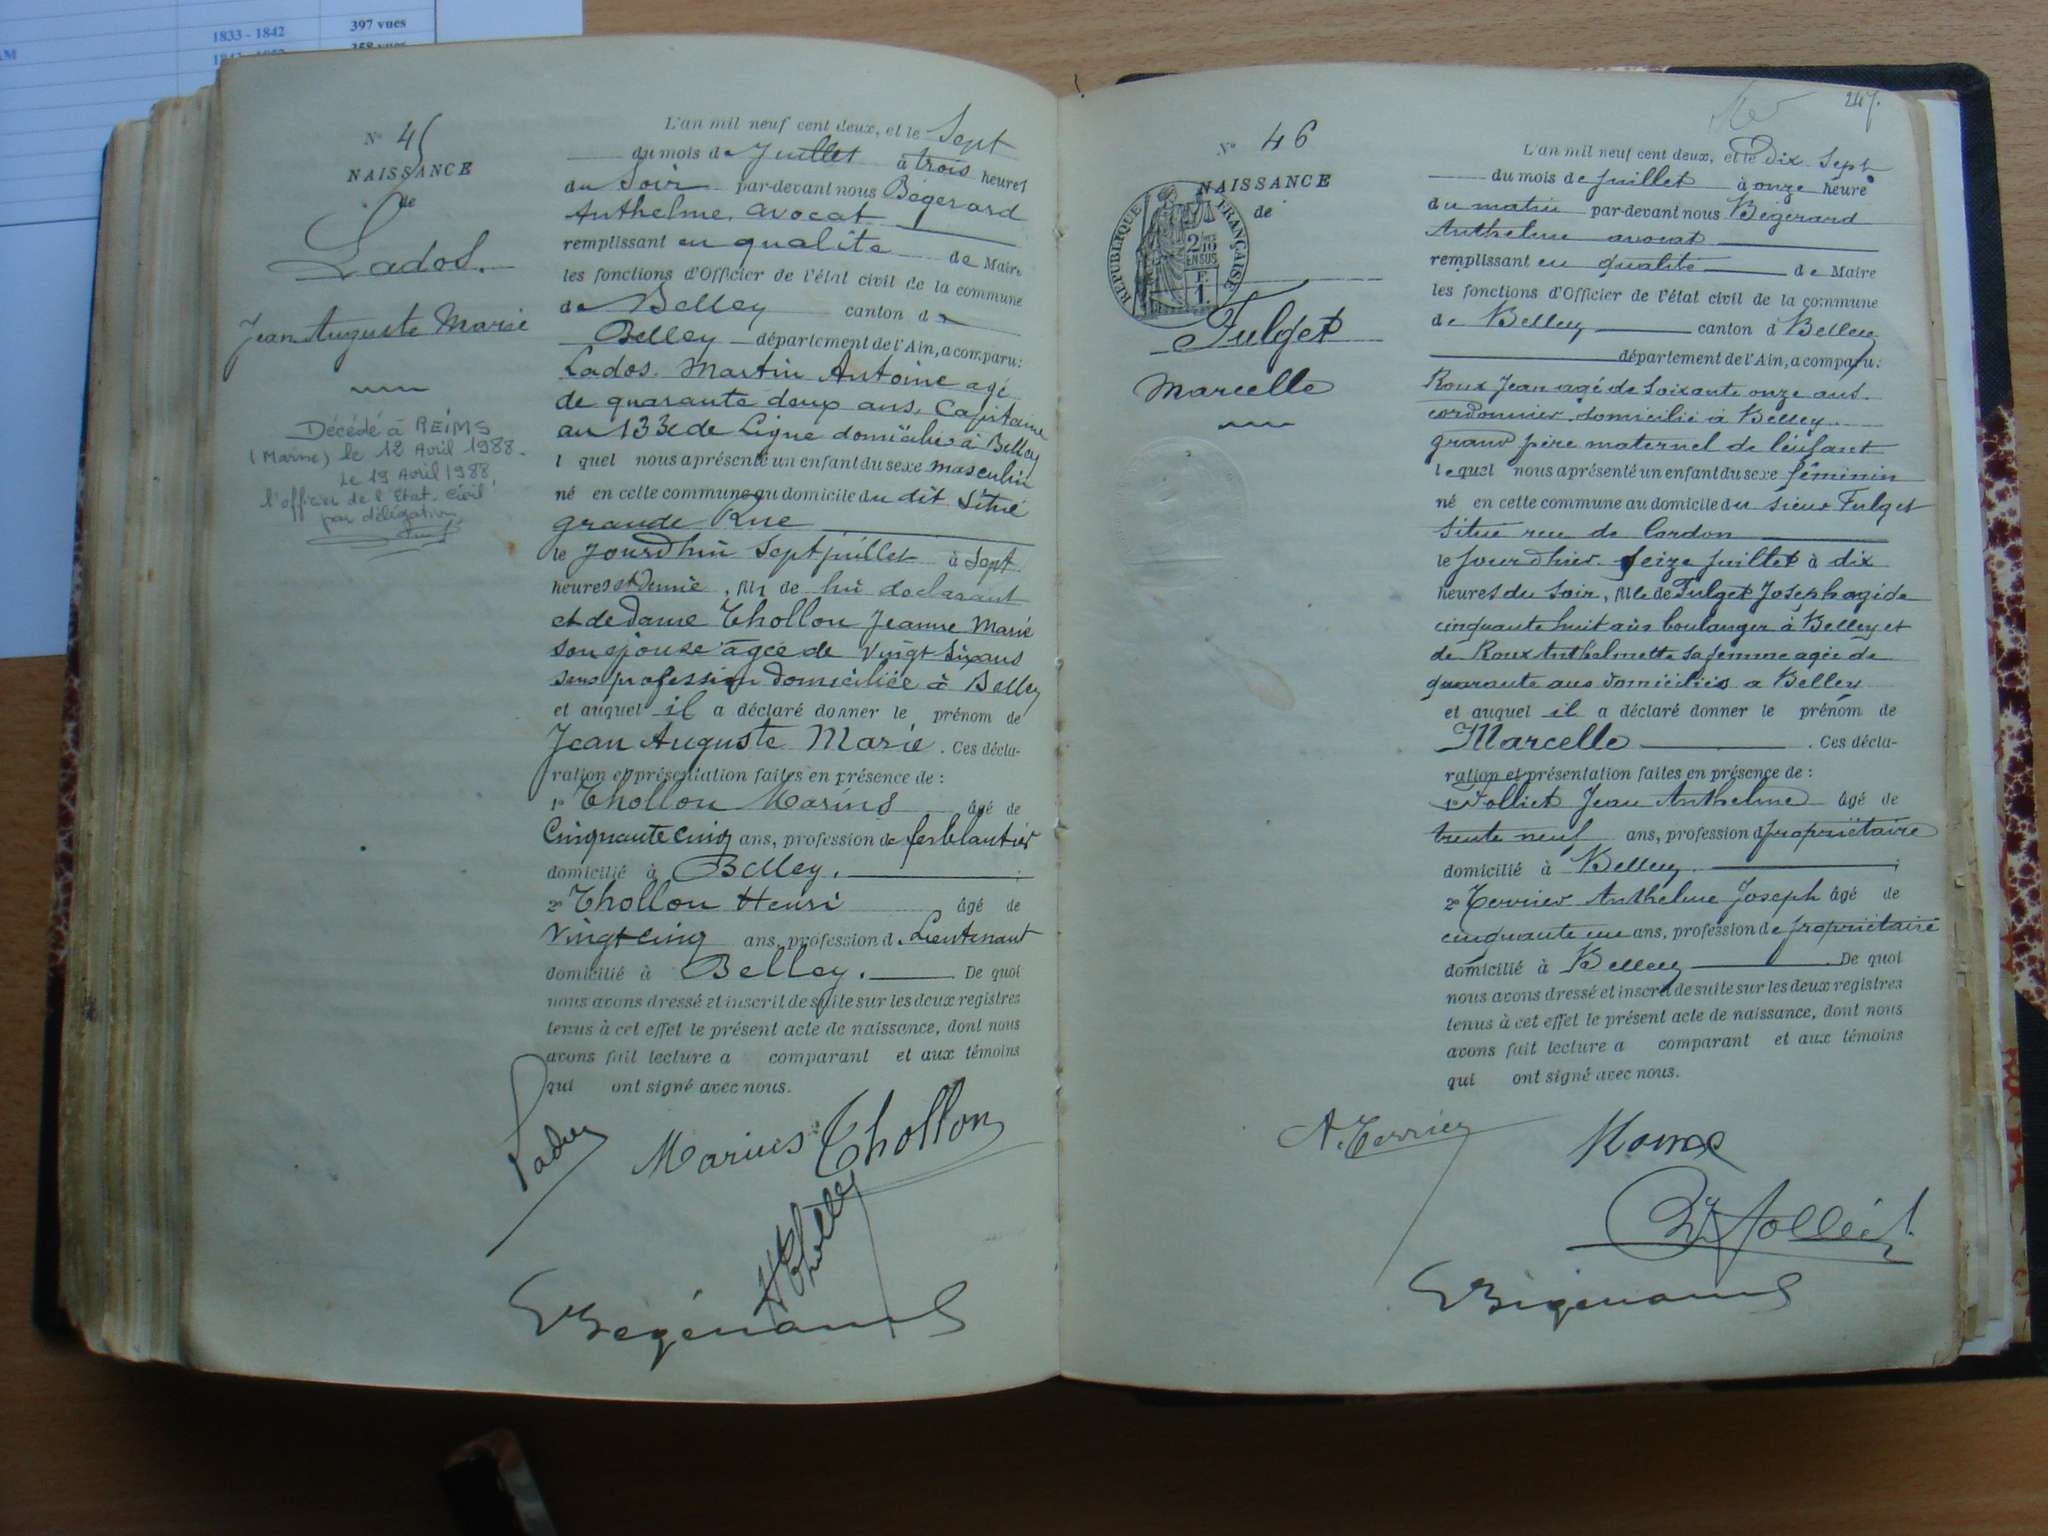 1833 - 1842
397 vues
N° 45
NAISSANCE
de
Lados.
Jean Auguste Marie
Décédé à REIMS
(Marne) le 12 Avril 1988.
Le 19 Avril 1988,
l'officier de l'Etat. Civil
par délégation
L'an mil neuf cent deux, et le Sept
du mois de Juillet à trois heures
du Soir par-devant nous Bégerard
Anthelme, avocat
remplissant en qualité de Maire
les fonctions d'Officier de l'état civil de la commune
de Belley canton de
Belley département de l'Ain, a comparu:
Lados. Martin Antoine agé
de quarante deux ans, Capitaine
au 133e de Ligne domicilié à Belley
l quel nous a présenté un enfant du sexe masculin
né en cette commune au domicile du dit Situé
grande Rue
le jourdhui Sept juillet à Sept
heures et demie, fils de lui déclarant
et de Dame Thollon Jeanne Marie
son épouse âgée de vingt Six ans
sans profession domiciliée à Belley
et auquel il a déclaré donner le prénom de
Jean Auguste Marie. Ces décla-
ration et présentation faites en présence de :
1° Thollon Marius âgé de
Cinquante cinq ans, profession de ferblantier
domicilié à Belley. ;
2° Thollon Henri âgé de
Vingt cinq ans, profession d. Lieutenant
domicilié à Belley. De quoi
nous avons dressé et inscrit de suite sur les deux registres
tenus à cet effet le présent acte de naissance, dont nous
avons fait lecture a comparant et aux témoins
qui ont signé avec nous.
Lados
Marius Thollon
H Thollon
Bégerard
247.
N° 46
NAISSANCE
de
RÉPUBLIQUE FRANÇAISE
2/10
EN SUS
F.
1.
Fulget
Marcelle
L'an mil neuf cent deux, et le Dix Sept
du mois de juillet à onze heure
du matin par-devant nous Bégerard
Anthelme avocat
remplissant en qualité de Maire
les fonctions d'Officier de l'état civil de la commune
de Belley canton d Belley
département de l'Ain, a comparu:
Roux Jean agé de soixante onze ans
cordonnier domicilié à Belley
grand père maternel de l'enfant
lequel nous a présenté un enfant du sexe féminin
né en cette commune au domicile du sieur Fulget
situé rue de Cordon
le jour d'hier seize juillet à dix
heures du soir, fille de Fulget Joseph agé de
cinquante huit ans boulanger à Belley et
de Roux Anthelmette sa femme agée de
quarante ans domiciliés a Belley
et auquel il a déclaré donner le prénom de
Marcelle. Ces décla-
ration et présentation faites en présence de :
1° Folliet Jean Anthelme âgé de
trente neuf ans, profession d propriétaire
domicilié à Belley. ;
2° Terrier Anthelme Joseph âgé de
cinquante un ans, profession de propriétaire
domicilié à Belley De quoi
nous avons dressé et inscrit de suite sur les deux registres
tenus à cet effet le présent acte de naissance, dont nous
avons fait lecture a comparant et aux témoins
qui ont signé avec nous.
A. Terrier
Roux
Folliet
Bégerard